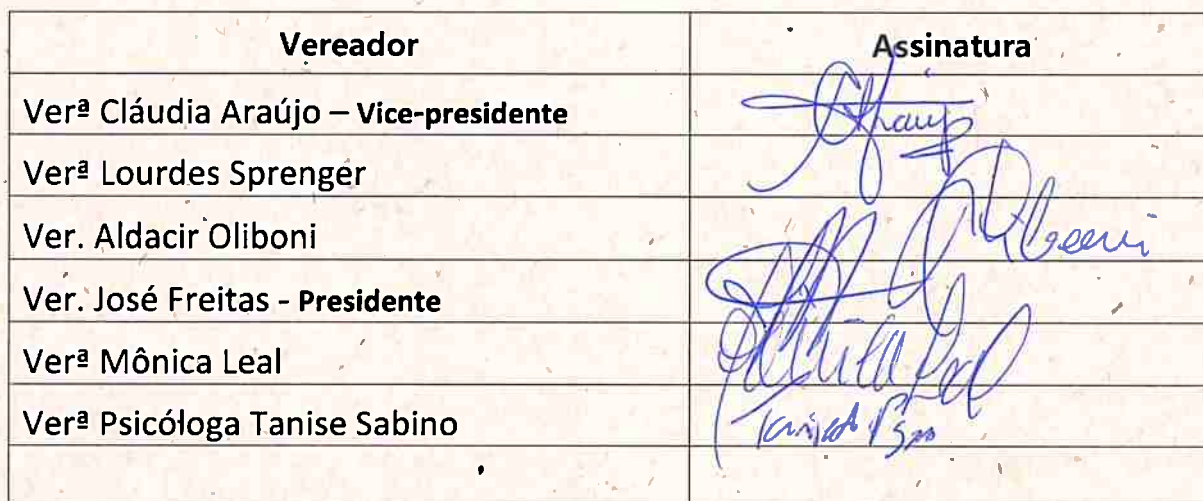 Vereador Assinatura
Verª Cláudia Araújo – Vice-presidente
Verª Lourdes Sprenger
Ver. Aldacir Oliboni
Ver. José Freitas - Presidente
Verª Mônica Leal
Verª Psicóloga Tanise Sabino